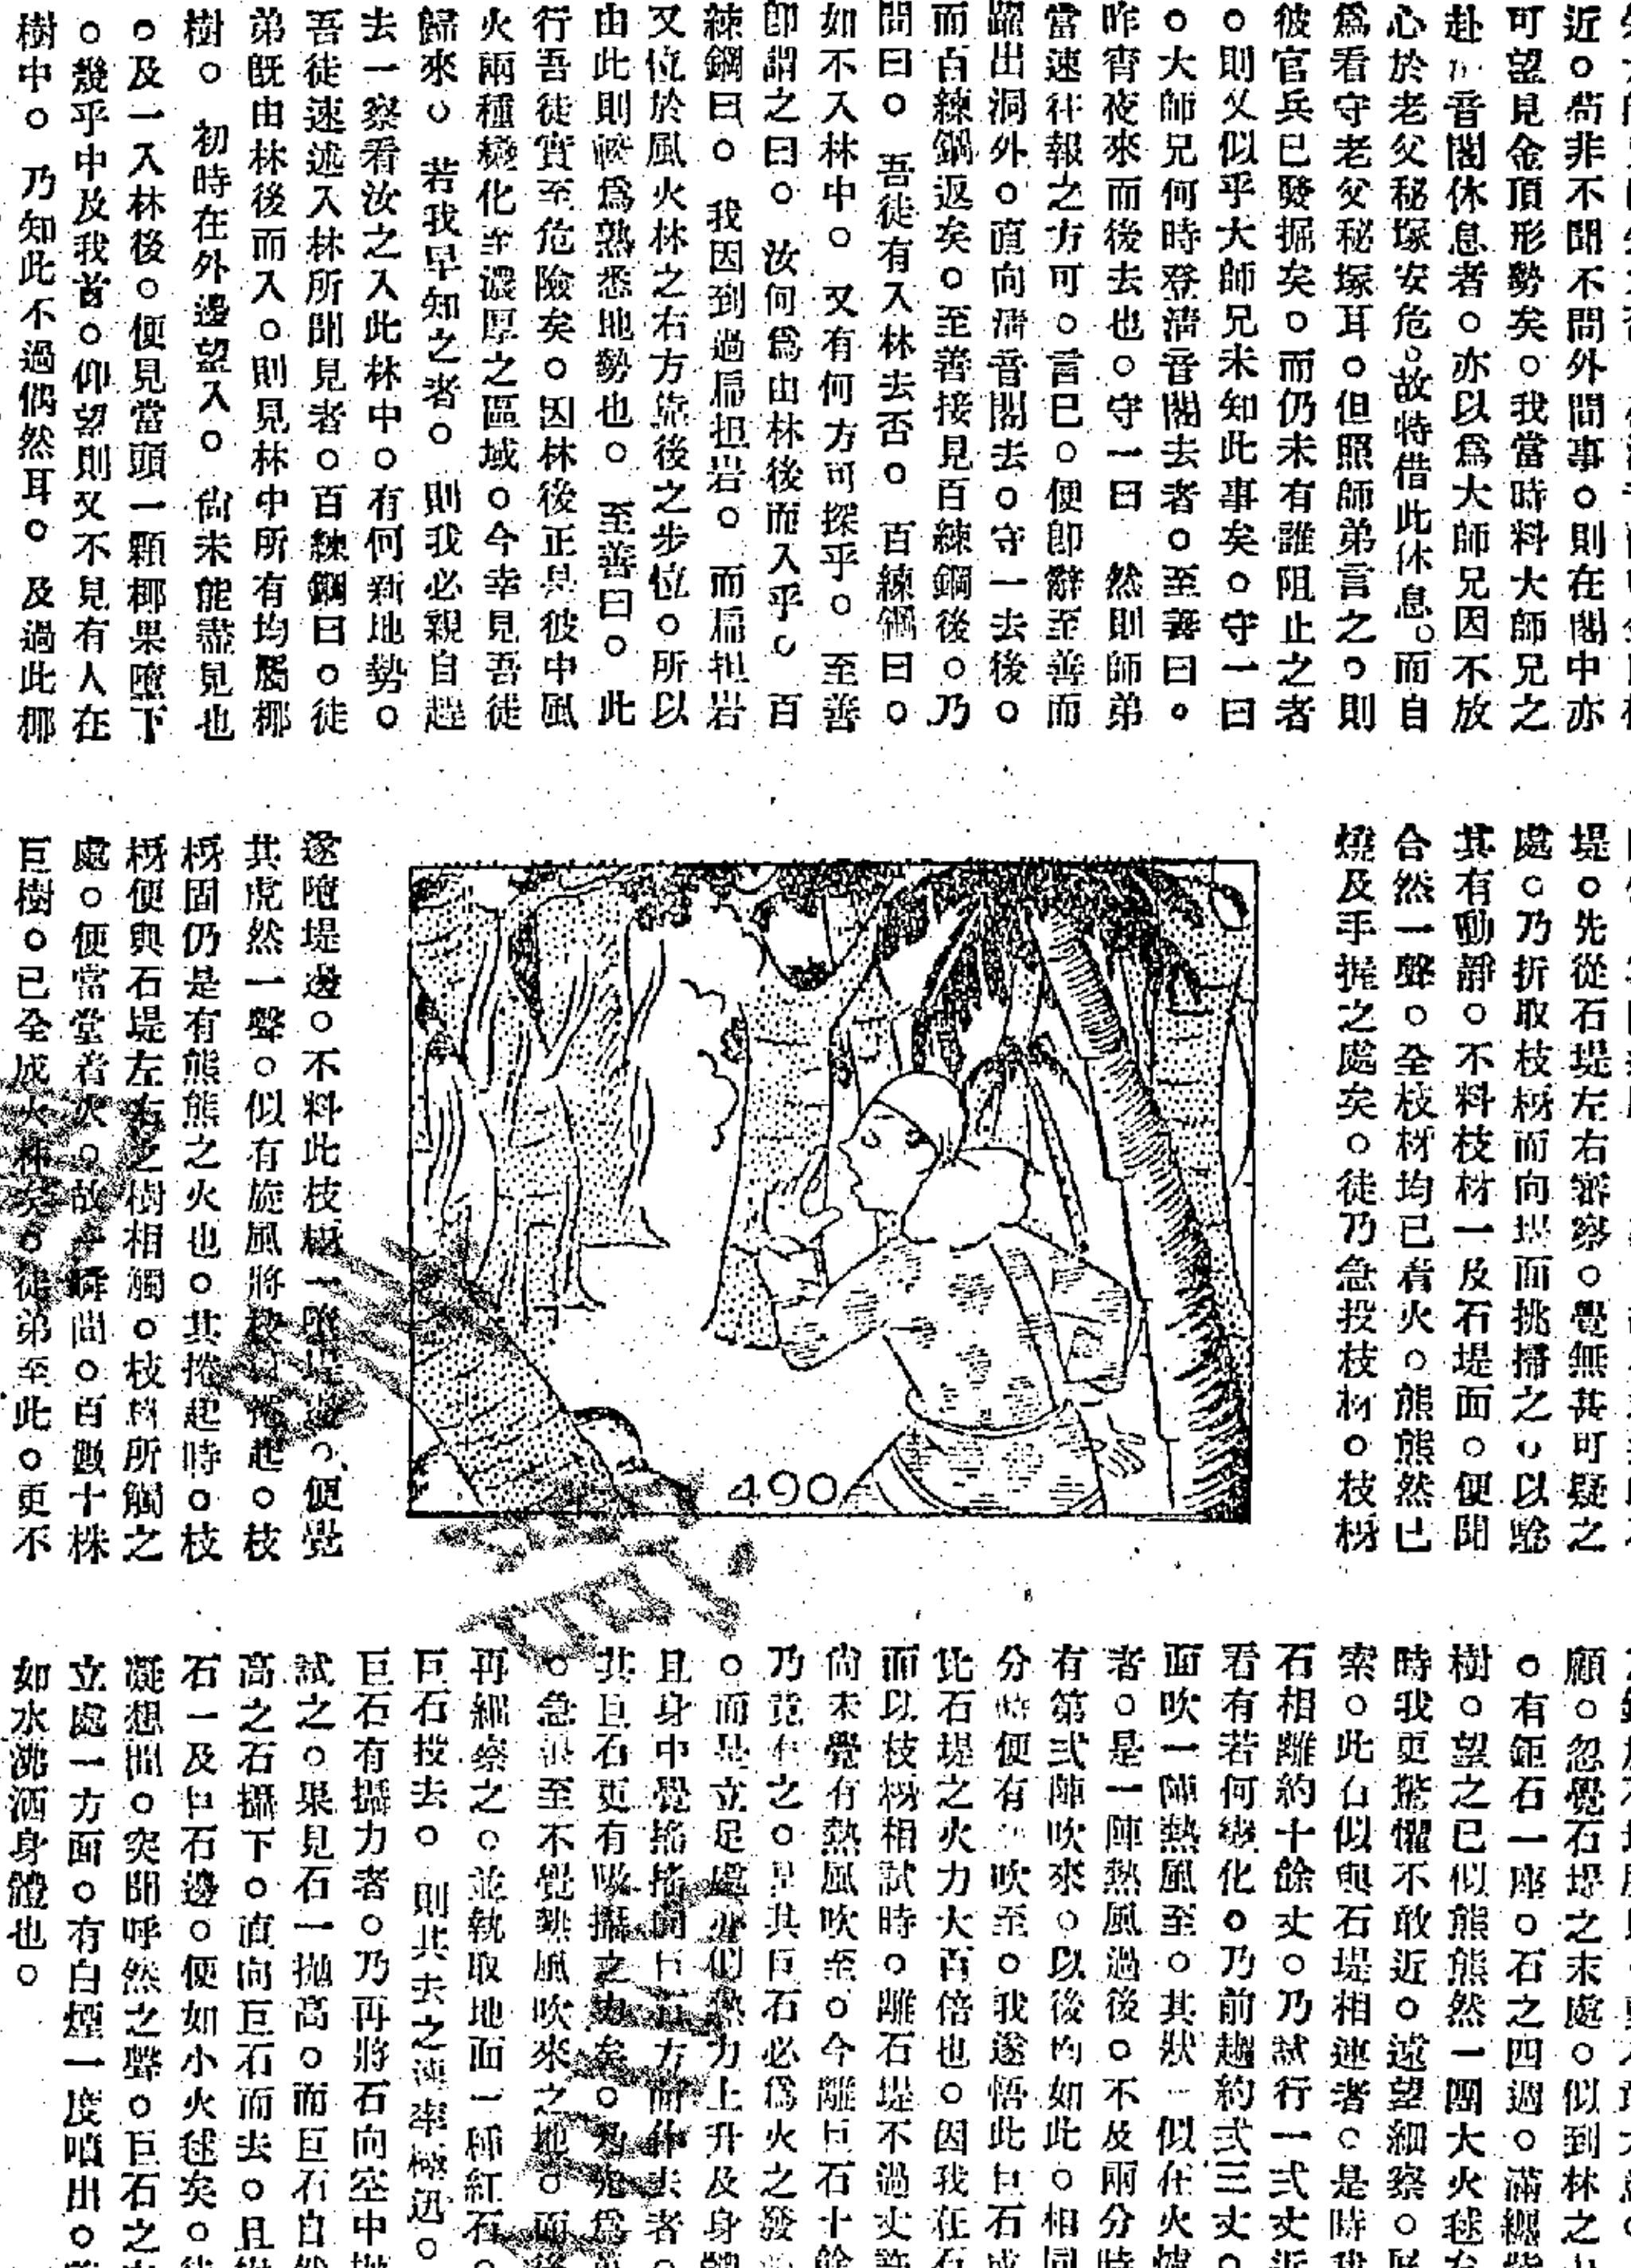 近。苟非不聞不問外間事。則在閣中亦
可望見金頂形勢矣。我當時料大師兄之
赴音閣休息者。亦以爲大師兄因不放
心於老父秘塚安危。故特借此休息。而自
爲看守老父秘塚耳。但照師弟言之。則
彼官兵已發掘矣。而仍未有誰阻止之者
。則又似乎大師兄未知此事矣。守一曰
。大師兄何時登淸音閣去者。至善曰。
昨宵夜來而後去也。守一曰 然則師弟
當速往報之方可。言已。便卽辭至善而
躍出洞外。直向淸音閣去。守一去後。
而百練鋼返矣。至善接見百練鋼後。乃
問曰。 吾徒有入林去否。 百練鋼曰。
如不入林中。又有何方可探乎。 至善
卽謂之曰。 汝何爲由林後而入乎。 百
練鋼曰。 我因到過扁担岩。 而扁担岩
又位於風火林之右方靠後之步位。所以
由此則較爲熟悉地勢也。 至善曰。 此
行吾徒實至危險矣。因林後正是彼中風
火兩種變化至濃厚之區域。今幸見吾徒
歸來。 若我早知之者。 則我必親自趕
去一察看汝之入此林中。有何新地勢。
吾徒速述入林所聞見者。百練鋼曰。徒
弟旣由林後而入。則見林中所有均屬椰
樹。 初時在外邊望入。 尙未能盡見也
。及一入林後。便見當頭一顆椰果墮下
。幾乎中及我首。仰望則又不見有人在
樹中。 乃知此不過偶然耳。 及過此椰
堤。先從石堤左右審察。覺無甚可疑之
處。乃折取枝枒而向堤面挑掃之。以驗
其有動靜。不料枝材一及石堤面。便聞
合然一聲。全枝材均已着火。熊熊然已
燒及手握之處矣。徒乃急投枝材。枝枒
遂墮堤邊。不料此枝枒一墮堤邊。便覺
其虎然一聲。似有旋風將枝枒捲起。枝
枒固仍是有熊熊之火也。其捲起時。枝
枒便與石堤左右之樹相觸。枝枒所觸之
處。便當堂着火。故一瞬間。百數十株
巨樹。已全成火林矣。徒弟至此。更不
490
顧。忽覺石堤之末處。似到林之
。有鉅石一座。石之四週。滿纏
樹。望之已似熊熊然一團大火毬
時我更驚懼不敢近。遠望細察。
索。此石似與石堤相連者。是時
石相離約十餘丈。乃試行一弍丈近
看有若何變化。乃前趨約弍三丈。
面吹一陣熱風至。其狀一似在火
者。是一陣熱風過後。不及兩分時
有第弍陣吹來。以後均如此。相同
分時便有吹至。我遂悟此巨石或
此石堤之火力大百倍也。因我在石
而以枝枒相試時。離石堤不過丈許
尙未覺有熱風吹至。今離巨石十餘
乃竟有之。是其巨石必爲火之發
。而是立足處亦似熱力上升及身
且身中覺搖搖向巨石方面仆去者。
其巨石更有吸攝之力矣。乃先爲
。急退至不覺熱風吹來之地。而後
再細察之。並執取地面一種紅石。
巨石投去。 則其去之速率極迅。
巨石有攝力者。乃再將石向空中拋
試之。果見石一拋高。而巨石自然
高之石攝下。直向巨石而去。且
石一及巨石邊。便如小火毬矣。
凝想間。突聞呼然之聲。巨石之
立處一方面。有白煙一度噴出。
如水沸洒身體也。